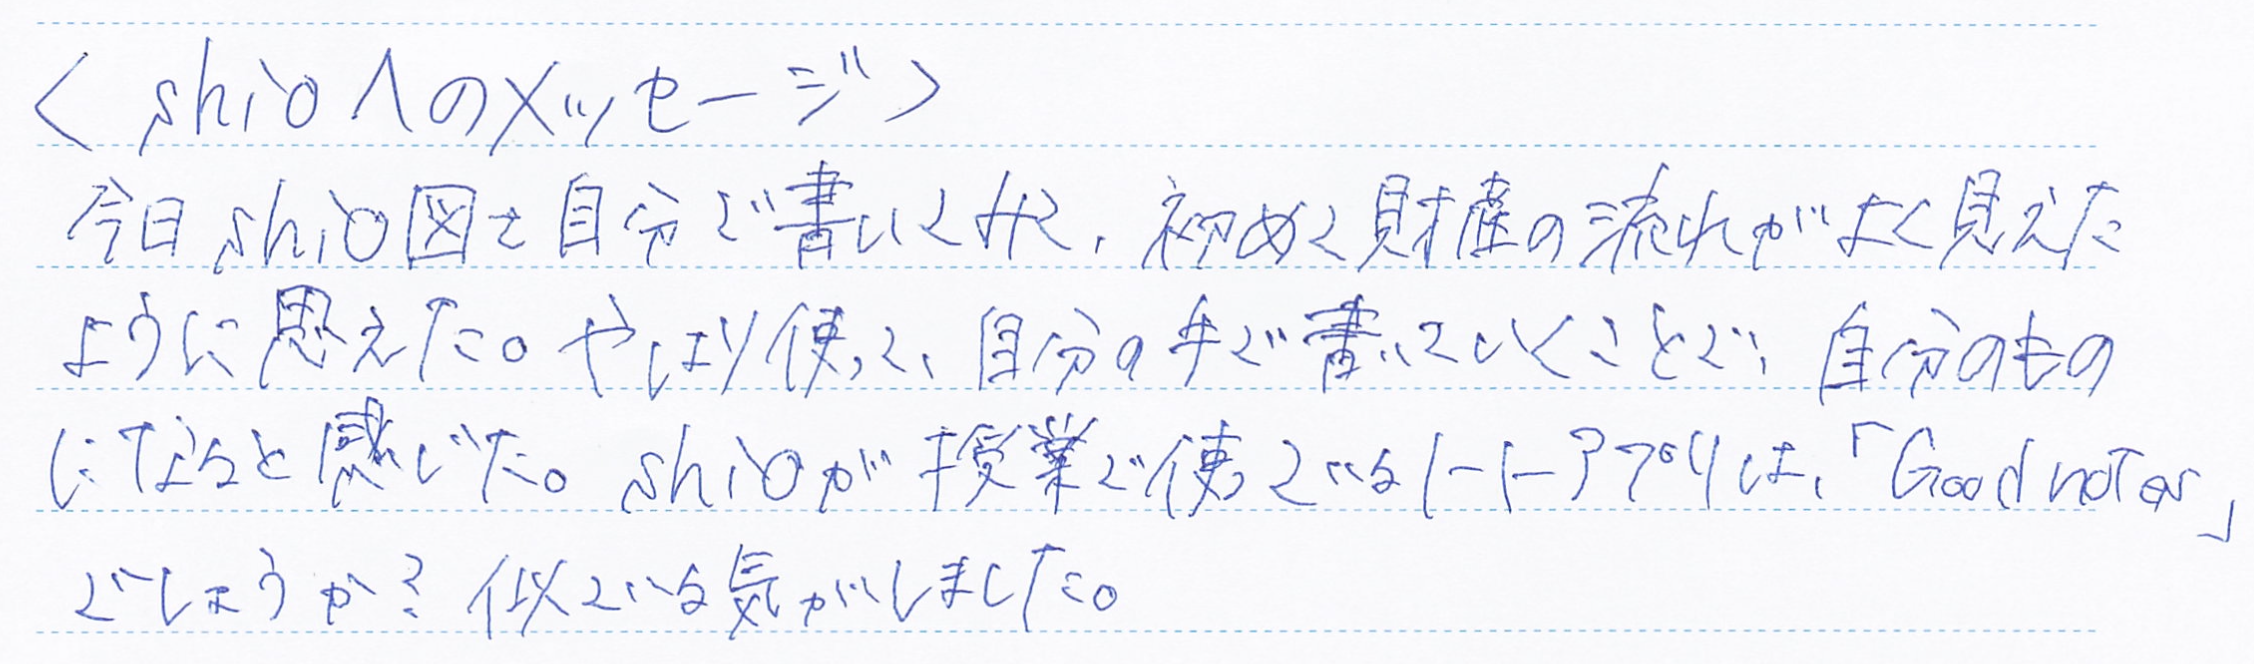 <shioへのメッセージ>
今日shio図を自分で書いてみて、初めて財産の流れがよく見えた
ように思えた。やはり使って、自分の手で書いていくことで、自分のもの
になると感じた。shioが授業で使っているノートアプリは、「Goodnotes」
でしょうか？似ている気がしました。